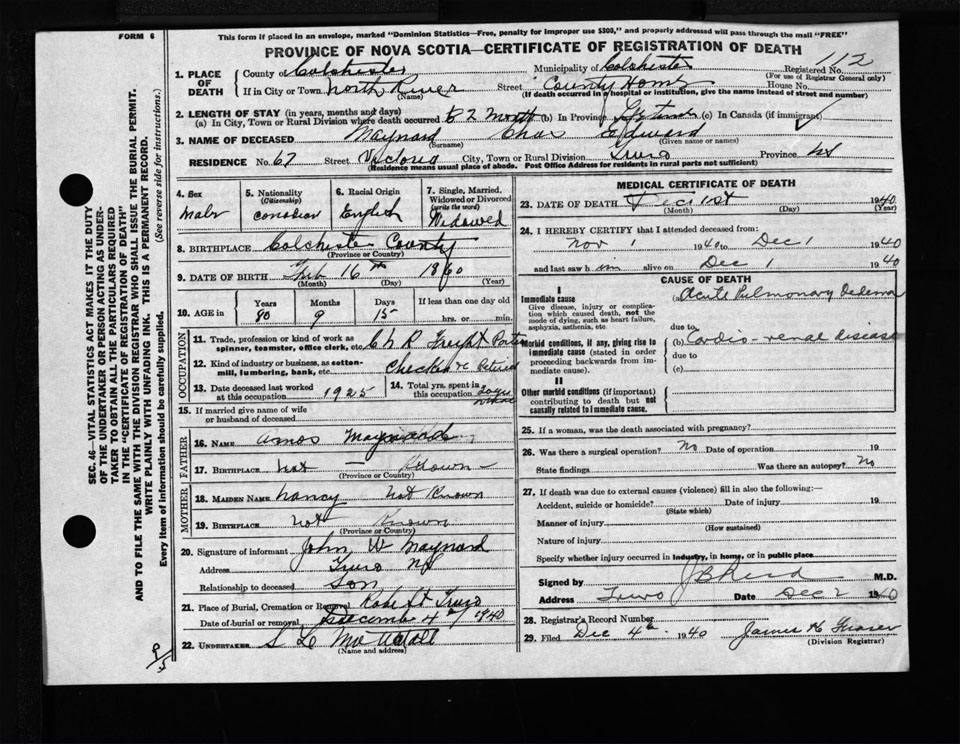 This form if placed in an envelope, marked "Dominion Statistics—Free, penalty for improper use $300," and properly addressed will pass through the mail "FREE"
FORM 6
PROVINCE OF NOVA SCOTIA—CERTIFICATE OF REGISTRATION OF DEATH
1. PLACE OF DEATH
County of Colchester Municipality of Colchester Registered No. 112
(For use of Registrar General only)
If in City or Town North River Street County Home House No.
(Name) (If death occurred in a hospital or institution, give the name instead of street and number)
2. LENGTH OF STAY (in years, months and days)
(a) In City, Town or Rural Division where death occurred 2 months (b) In Province (c) In Canada (if immigrant)
3. NAME OF DECEASED Maynard Chas Edward
(Surname) (Given name or names)
RESIDENCE No. 67 Street Victoria City, Town or Rural Division Truro Province NS
(Residence means usual place of abode. Post Office Address for residents in rural parts not sufficient)
4. Sex
Male
5. Nationality
(Citizenship)
Canadian
6. Racial Origin
English
7. Single, Married, Widowed or Divorced
(write the word)
Widowed
8. BIRTHPLACE Colchester County
(Province or Country)
9. DATE OF BIRTH Feb 16th 1860
(Month) (Day) (Year)
10. AGE in
Years Months Days If less than one day old
80 9 15 hrs. or min.
OCCUPATION
11. Trade, profession or kind of work as spinner, teamster, office clerk, etc. C N R Freight Porter
12. Kind of industry or business, as cotton-mill, lumbering, bank, etc. Checker Retired
13. Date deceased last worked at this occupation 1925
14. Total yrs. spent in this occupation
15. If married give name of wife or husband of deceased
FATHER
16. NAME Amos Maynard
17. BIRTHPLACE Not — Known —
(Province or Country)
MOTHER
18. MAIDEN NAME Nancy Not Known
19. BIRTHPLACE Not Known
(Province or Country)
20. Signature of informant John W Maynard
Address Truro NS
Relationship to deceased Son
21. Place of Burial, Cremation or Removal Robie St Truro
Date of burial or removal December 4th 1940
22. UNDERTAKER S L
(Name and address)
MEDICAL CERTIFICATE OF DEATH
23. DATE OF DEATH Dec 1st 1940
(Month) (Day) (Year)
24. I HEREBY CERTIFY that I attended deceased from:
Nov 1 1940 to Dec 1 1940
and last saw him alive on Dec 1 1940
CAUSE OF DEATH
I
Immediate cause
Give disease, injury or complication which caused death, not the mode of dying, such as heart failure, asphyxia, asthenia, etc
(a) Acute Pulmonary Edema
due to
Morbid conditions, if any, giving rise to immediate cause (stated in order proceeding backwards from immediate cause).
(b) Cardio-renal disease
due to
(c)
II
Other morbid conditions (if important) contributing to death but not causally related to immediate cause.
25. If a woman, was the death associated with pregnancy?
26. Was there a surgical operation? No Date of operation 19
State findings Was there an autopsy? No
27. If death was due to external causes (violence) fill in also the following:—
Accident, suicide or homicide? Date of injury 19
(State which)
Manner of injury
(How sustained)
Nature of injury
Specify whether injury occurred in industry, in home, or in public place
Signed by J B Reid M.D.
Address Truro Date Dec 2 1940
28. Registrar's Record Number
29. Filed Dec 4th 1940 James H Fraser
(Division Registrar)
SEC. 46—VITAL STATISTICS ACT MAKES IT THE DUTY
OF THE UNDERTAKER OR PERSON ACTING AS UNDER-
TAKER TO OBTAIN ALL THE PARTICULARS REQUIRED
IN THE "CERTIFICATE OF REGISTRATION OF DEATH"
AND TO FILE THE SAME WITH THE DIVISION REGISTRAR WHO SHALL ISSUE THE BURIAL PERMIT.
WRITE PLAINLY WITH UNFADING INK. THIS IS A PERMANENT RECORD.
Every item of information should be carefully supplied. (See reverse side for instructions.)